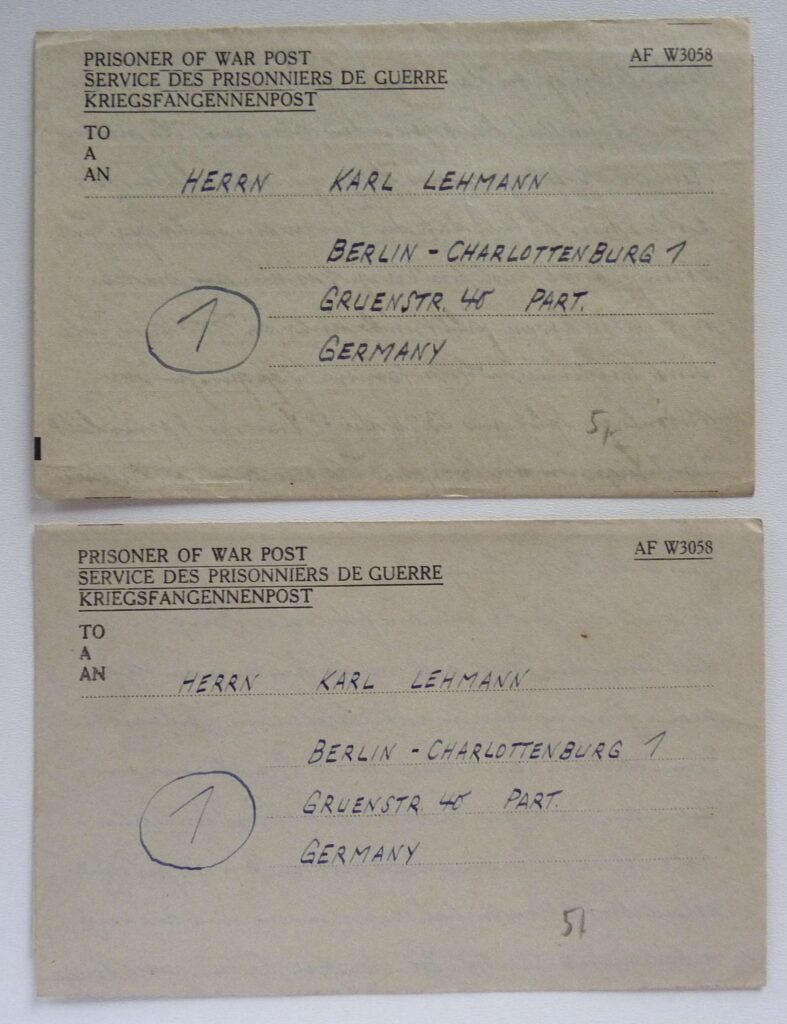 PRISONER OF WAR POST AF W3058
SERVICE DES PRISONNIERS DE GUERRE
KRIEGSFANGENNENPOST
TO
A
AN
HERRN KARL LEHMANN
BERLIN - CHARLOTTENBURG 1
GRUENSTR. 40 PART.
1
GERMANY
PRISONER OF WAR POST AF W3058
SERVICE DES PRISONNIERS DE GUERRE
KRIEGSFANGENNENPOST
TO
A
AN
HERRN KARL LEHMANN
BERLIN - CHARLOTTENBURG 1
GRUENSTR. 40 PART.
1
GERMANY